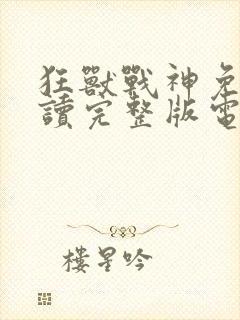 狂獸戰神免
讀完整版電
樓星吟